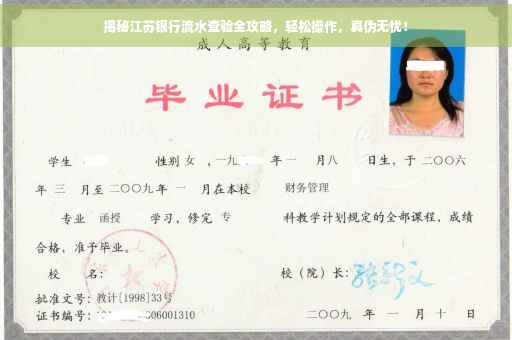 揭秘江苏银行流水查验全攻略，轻松操作，真伪无忧！
成人高等教育
毕业证书
学生 性别 女 ，一九 年 一 月八 日生，于 二〇〇六
年 三 月至 二〇〇九年 一 月在本校 财务管理
专业 函授 学习，修完 专 科教学计划规定的全部课程，成绩
合格，准予毕业。
校 名： 校（院）长：
批准文号：教计[1998]33号
证书编号： 06001310 二〇〇九 年 一 月 十 日